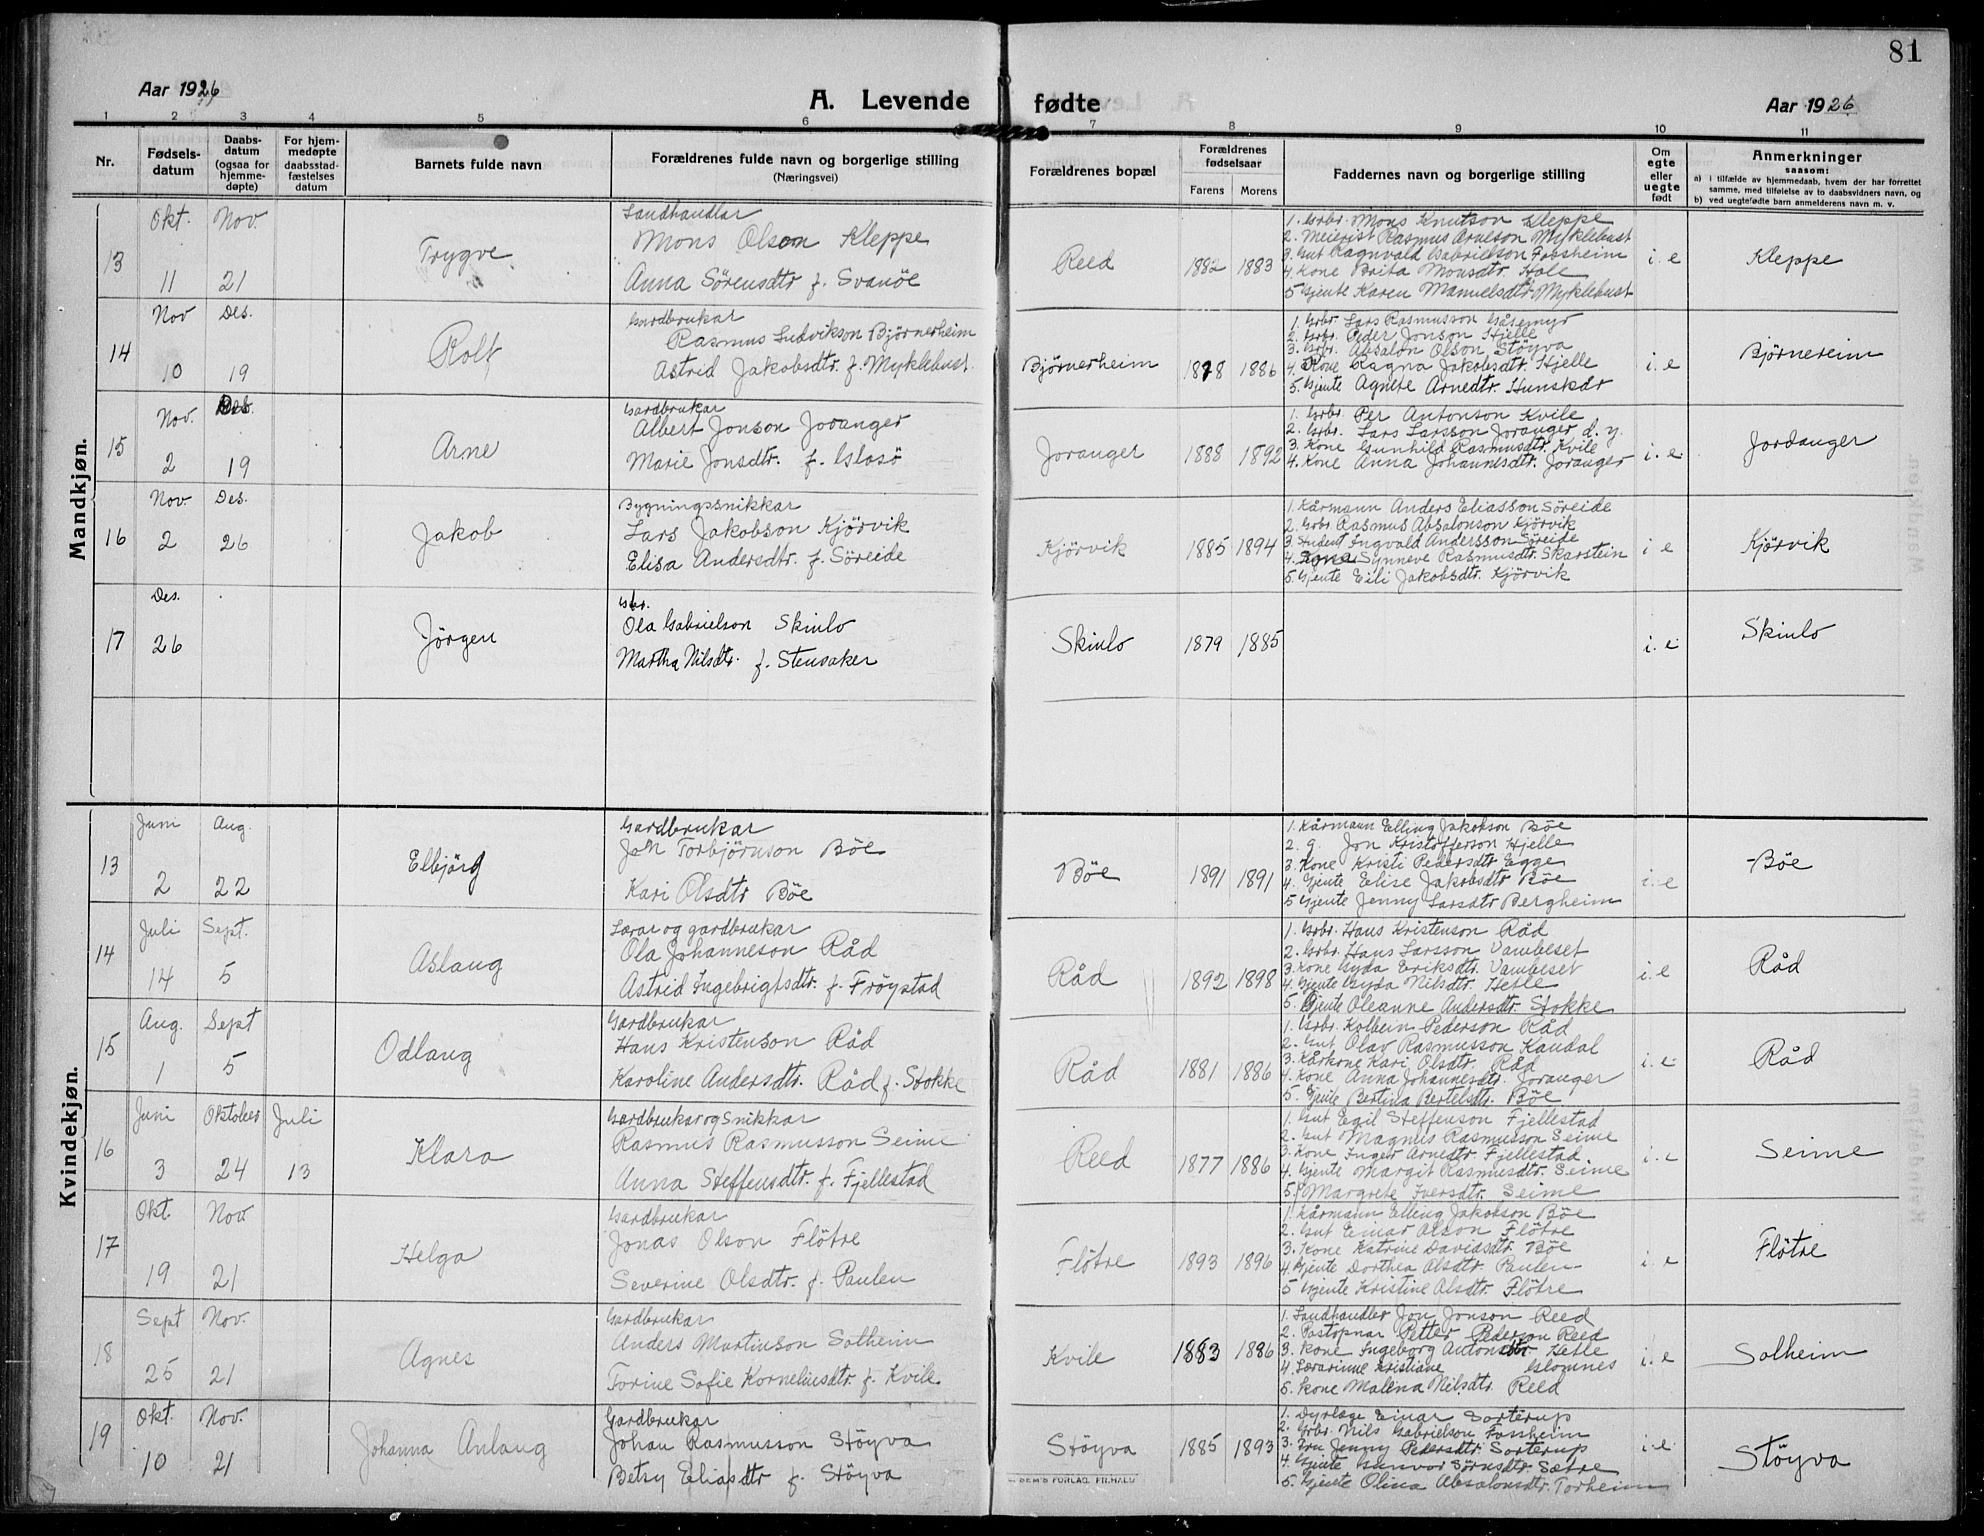 81
Aar 1926
A. Levende fødte
Aar 1926
1 2 3 4 5 6 7 8 9 10 11
Nr.
Fødsels-
datum
Daabs-
datum
(ogsaa for
hjemme-
døpte)
For hjem-
medøpte
daabsstad-
fæstelses
datum
Barnets fulde navn
Forældrenes fulde navn og borgerlige stilling
(Næringsvei)
Forældrenes bopæl
Forældrenes
fødselsaar
Farens Morens
Faddernes navn og borgerlige stilling
Om
egte
eller
uegte
født
Anmerkninger
saasom:
a) i tilfælde av hjemmedaab, hvem der har forrettet
samme, med tilføielse av to daabsvidners navn, og
b) ved uegtefødte barn anmelderens navn m. v.
Mandkjøn.
13
Okt. Nov.
11 21
Trygve
Landhandlar
Mons Olson Kleppe
Anna Sörensdtr f. Svanöe
Reed
1882 1883
1. Grbr. Mons Knutson Kleppe
2. Meierist Rasmus Arneson Myklebust
3. Gut Ragnvald Gabrielson Fossheim
4. Kone Brita Monsdtr. Hole
5. Gjente Karen Manuelsdtr. Myklebust
i. e
Kleppe
14
Nov Des.
10 19
Rolf
Gardbrukar
Rasmus Ludvikson Björnerheim
Astrid Jakobsdtr. f. Myklebust
Bjørnerheim
1878 1886
1. Grbr. Lars Rasmusson Gåsemyr
2. Grbr. Peder Jonson Hjelle
3. Grbr. Absalon Olson Støyva
4. Kone Ragna Jakobsdtr. Hjelle
5. Gjente Agnete Arnedtr. Hunskår
i. e
Bjørnereim
15
Nov. Des.
2 19
Arne
Gardbrukar
Albert Jonson Joranger
Marie Jonsdtr. f. Glasö
Joranger
1888 1892
1. Grbr. Per Antonson Kvile
2. Grbr. Lars Larsson Joranger d. y.
3. Kone Gunhild Rasmusdtr. Kvile
4. Kone Anna Johannesdtr. Joranger
i. e
Jordanger
16
Nov. Des.
2 26
Jakob
Bygningssnikkar
Lars Jakobson Kjörvik
Elisa Andersdtr. f. Söreide
Kjörvik
1885 1894
1. Kårmann Anders Eliasson Söreide
2. Grbr. Rasmus Absalonson Kjörvik
3. Student Ingvald Andersson Söreide
4. Synneve Rasmusdtr. Skarstein
5. Gjente Eili Jakobsdtr. Kjörvik
i. e
Kjørvik
17
Des.
26
Jörgen
Gbr.
Ola Gabrielson Skinlo
Martha Nilsdtr. f. Stensaker
Skinlo
1879 1885
i. e
Skinlo
Kvindekjøn.
13
Juni Aug.
2 22
Elbjörg
Gardbrukar
Joh Torbjörnson Böe
Kari Olsdtr Böe
Böe
1891 1891
1. Kårmann Elling Jakobson Böe
2. g. Jon Kristofferson Hjelle
3. Kone Kristi Pedersdtr. Egge
4. Gjente Elise Jakobsdtr Böe
5. Gjente Jenny Larsdtr Bergheim
i. e
Böe
14
Juli Sept.
14 5
Aslaug
Lærar og gardbrukar
Ola Johanneson Råd
Astrid Ingebrigtsdtr. f. Fröystad
Råd
1892 1898
1. Grbr. Hans Kristenson Råd
2. Grbr. Hans Larsson Vambeset
3. Kone Gyda Eriksdtr. Vambeset
4. Gjente Gyda Nilsdtr. Hetle
5. Gjente Oleanne Andersdtr. Stokke
i. e
Råd
15
Aug. Sept
1 5
Odlaug
Gardbrukar
Hans Kristenson Råd
Karoline Andersdtr. Råd f. Stokke
Råd
1881 1886
1. Grbr. Kolbein Pederson Råd
2. Gut Olav Rasmusson Kandal
3. Kårkone Kari Olsdtr. Råd
4. Kone Anna Johannesdtr. Joranger
5. Gjente Bertina Bertelsdtr. Böe
i. e
Råd
16
Juni Oktober Juli
3 24 13
Klara
Gardbrukar og Snikkar
Rasmus Rasmusson Seime
Anna Steffensdtr. f. Fjellestad
Reed
1877 1886
1. Gut Egil Steffenson Fjellestad
2. Gut Magnus Rasmusson Seime
3. Kone Inger Arnedtr. Fjellestad
4. Gjente Margit Rasmusdtr. Seime
5. Margrete Iversdtr. Seime
i. e
Seime
17
Okt. Nov
19 21
Helga
Gardbrukar
Jonas Olson Flötre
Severine Olsdtr. f. Paulen
Flötre
1893 1896
1. Kårmann Elling Jakobson Böe
2. Gut Einar Olson Flötre
3. Kone Katrine Davidsdtr. Böe
4. Gjente Dorthea Olsdtr. Paulen
5. Gjente Kristine Olsdtr. Flötre
i. e
Flötre
18
Sept Nov.
25 21
Agnes
Gardbrukar
Anders Martinson Solheim
Torine Sofie Korneliusdtr. f. Kvile
Kvile
1883 1886
1. Landhandler Jon Jonson Reed
2. Postopnar Petter Pederson Reed
3. Kone Ingeborg Antonsdtr. Hetle
4. Lærarinne Kristiane Glomnes
5. Kone Malena Nilsdtr. Reed
i. e
Solheim
19
Okt. Nov.
10 21
Johanna Anlaug
Gardbrukar
Johan Rasmusson Støyva
Betsy Eliasdtr f. Støyva
Støyva
1885 1893
1. Dyrlæge Einar Sorterup
2. Grbr. Nils Gabrielson Fossheim
3. Fru Jenny Pedersdtr. Sorterup
4. Gjente Gunvor Sörnsdtr. Sætre
5. Gjente Olina Absalonsdtr. Torheim
i. e
Støyva
SEM'S FORLAG, FR.HALD